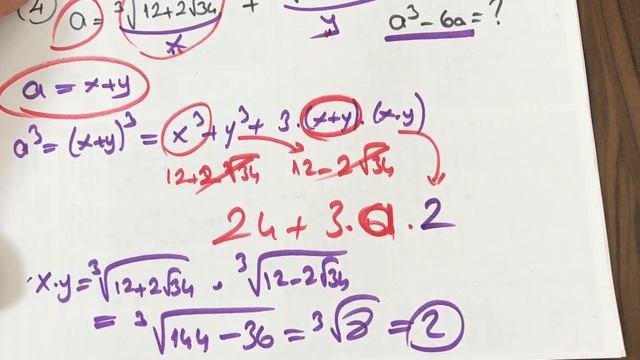 (4) a = ³√(12+2√34) + √ a³ - 6a = ?
x y
a = x+y
a³ = (x+y)³ = x³ + y³ + 3·(x+y)·(x·y)
12+2√34 12-2√34
24 + 3·a·2
x·y = ³√(12+2√34) · ³√(12-2√34)
= ³√(144-36) = ³√8 = 2